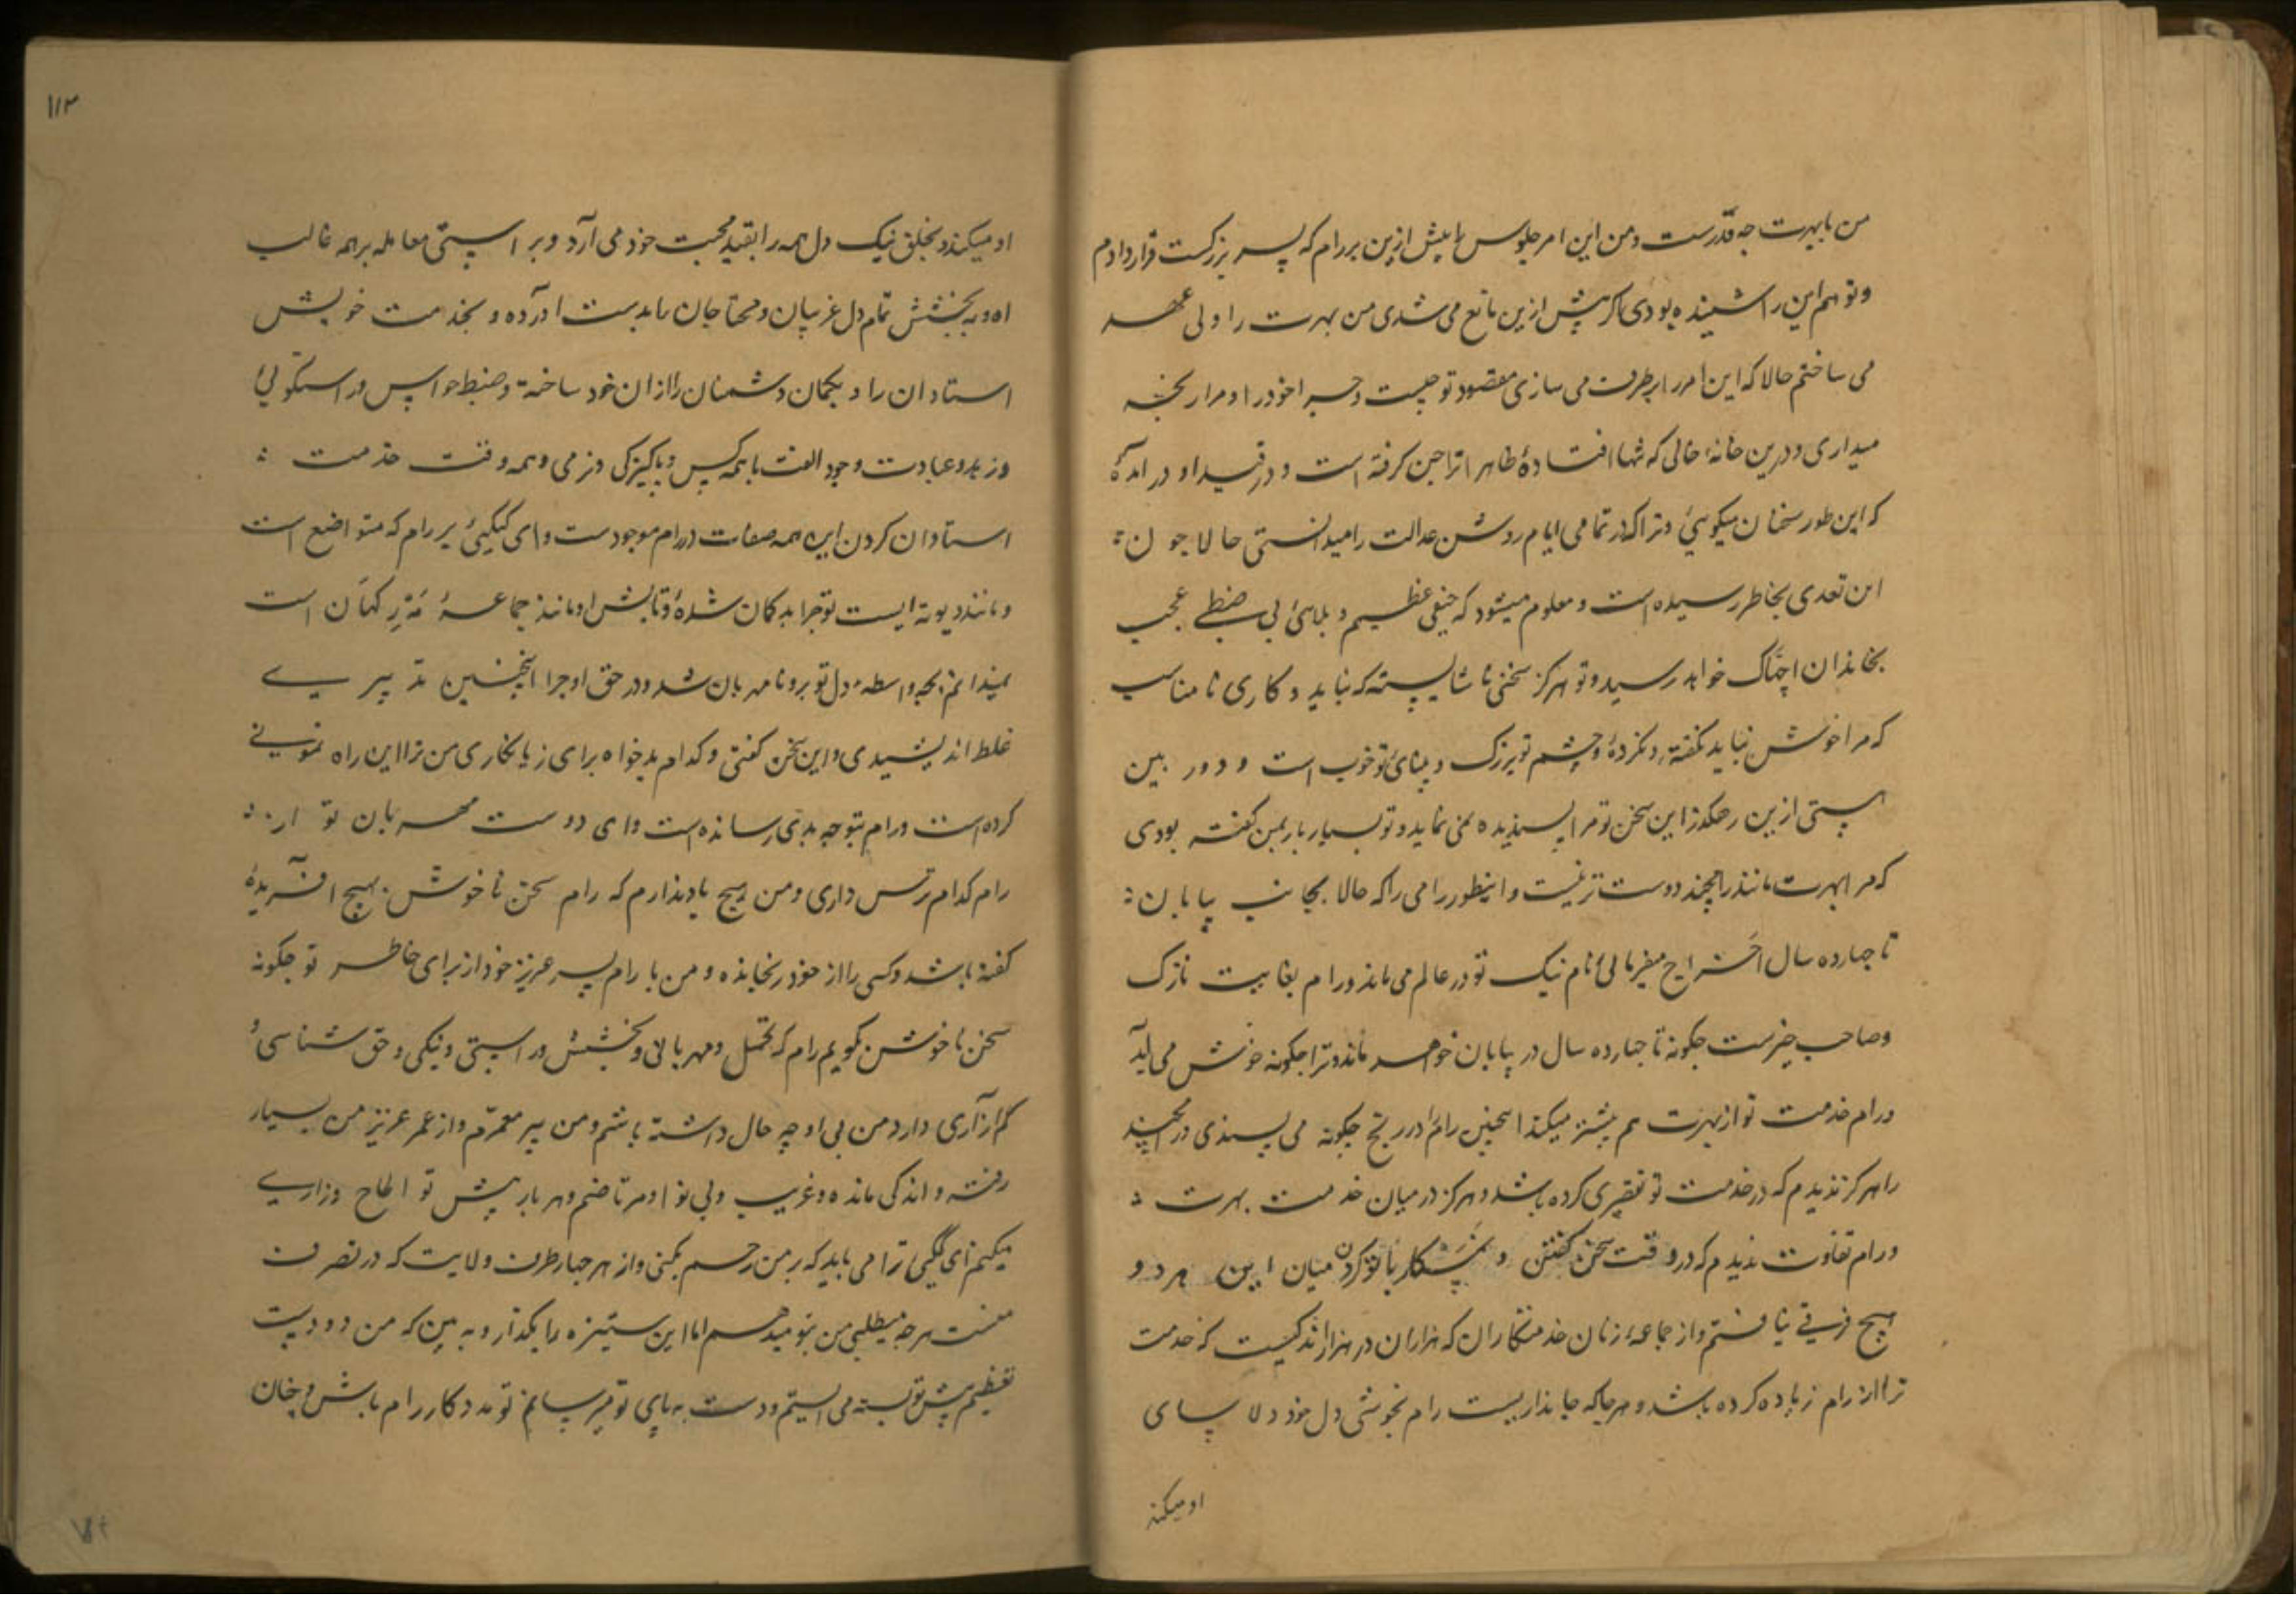 من با بهرت چه قدرست و من این امر جلوس را پیش ازین بر رام که پسر بزرکست قرار دادم
و تو هم این را شنیده بودی اکر پیش ازین مانع می شدی من بهرت را ولی عهد
می ساختم حالا که این امر را برطرف می سازی مقصود تو چیست و چرا خود را و مرا رنجه
میداری و درین خانهٔ خالی که تنها افتادهٔ ظاهرا ترا جن کرفته است و در قید او در آمدهٔ
که این طور سخنان میکوئی و ترا که در تمامی ایام روشن عدالت را میدانستی حالا چون
این تعدی بخاطر رسیده است و معلوم میشود که حیفی عظیم و بلائی بی ضبطی عجب
بخاندان اچهاک خواهد رسید و تو هرکز سخنی نا شایسته که نباید و کاری نا مناسب
که مرا خوش نیاید نکفته و نکردهٔ و چشم تو بزرک و بینائی تو خوب است و دور بین
هستی ازین رهکذر این سخن تو مرا پسندیده نمی نماید و تو بسیار بار بمن کفته بودی
که مرا بهرت مانند رامچند دوست تر نیست و اینطور رامی را که حالا بجانب بیابان
تا چهارده سال اخراج میفرمائی نام نیک تو در عالم می ماند و رام بغایت نازک
و صاحب خیرست چکونه تا چهارده سال در بیابان خواهد ماند و ترا چکونه خوش می آید
و رام خدمت تو از بهرت هم بیشتر میکند اینچنین رام را در رنج چکونه می پسندی و رامچند
را هرکز ندیدم که در خدمت تو تقصیری کرده باشد و هرکز در میان خدمت بهرت
و رام تفاوت ندیدم که در وقت سخن کفتن و پیشکار با تو کردن میان این هر دو
هیچ فرقی نیافتم و از جماعهٔ زنان خدمتکاران که هزاران در هزاراند کیست که خدمت
ترا از رام زیاده کرده باشد و هر جا که جانداریست رام بخوشی دل خود دلاسای
او میکند
۱۱۳
او میکند و بخلق نیک دل همه را بقید محبت خود می آرد و بر استی معامله بر همه غالب
امده و به بخشش تمام دل غریبان و محتاجان را بدست در آورده و بخدمت خویش
استادان را و بکمان دشمنان را از ان خود ساخته و ضبط حواس و راستکوئی
و زهد و عبادت وجود الفت با همه کس و پاکیزکی و نرمی و همه وقت خدمت
استادان کردن این همه صفات در رام موجودست و ای کیکئی بر رام که متواضع است
و مانند دیوتا ایست تو چرا بدکمان شدهٔ و تابش او مانند جماعهٔ مهررکهان است
نمیدانم بچه واسطه دل تو برو نامهربان شد و در حق او چرا اینچنین تدبیری
غلط اندیشیدی و این سخن کفتی و کدام بدخواه برای زیانکاری من ترا این راه نمونی
کرده است و رام بتو چه بدی رسانده است و ای دوست مهربان تو از
رام کدام ترس داری و من هیچ یاد ندارم که رام سخن ناخوش بهیچ آفریدهٔ
کفته باشد و کسی را از خود رنجانده و من با رام پسر عزیز خود از برای خاطر تو چکونه
سخن ناخوش کویم رام که تحمل و مهربانی و بخشش و راستی و نیکی و حق شناسی و
کم آزاری دارد من بی او چه حال داشته باشم و من پیر معمرم و از عمر عزیز من بسیار
رفته و اندکی مانده و غریب و بی نوا و مرتاضم و هر بار پیش تو الحاح و زاری
میکنم ای کیکئی ترا می باید که بر من رحم بکنی و از هر چهار طرف ولایت که در تصرف
منست هر چه میطلبی من بتو میدهم اما این ستیزه را بکذار و به بین که من دو دست
تعظیم پیش تو بسته می ایستم و دست به پای تو میرسانم تو مدد کار رام باش و چنان